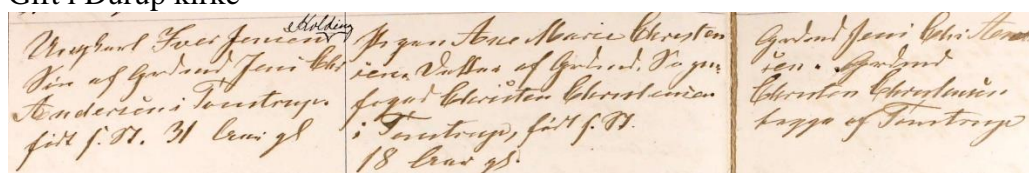 Gift i Durup kirke
Holding
Ungkarl Iver Jensen
Søn af Grdmd Jens Chr
Andersen i Tomtrup.
født s. St. 31 Aar gl
Pigen Ane Marie Christen
sen, Datter af Grdmd. Sogne
foged Christen Christensen
i Tomtrup, født s. St.
18 Aar gl.
Grdmd Jens Chr. Ander
sen. Grdmd
Christen Christensen
begge af Tomtrup